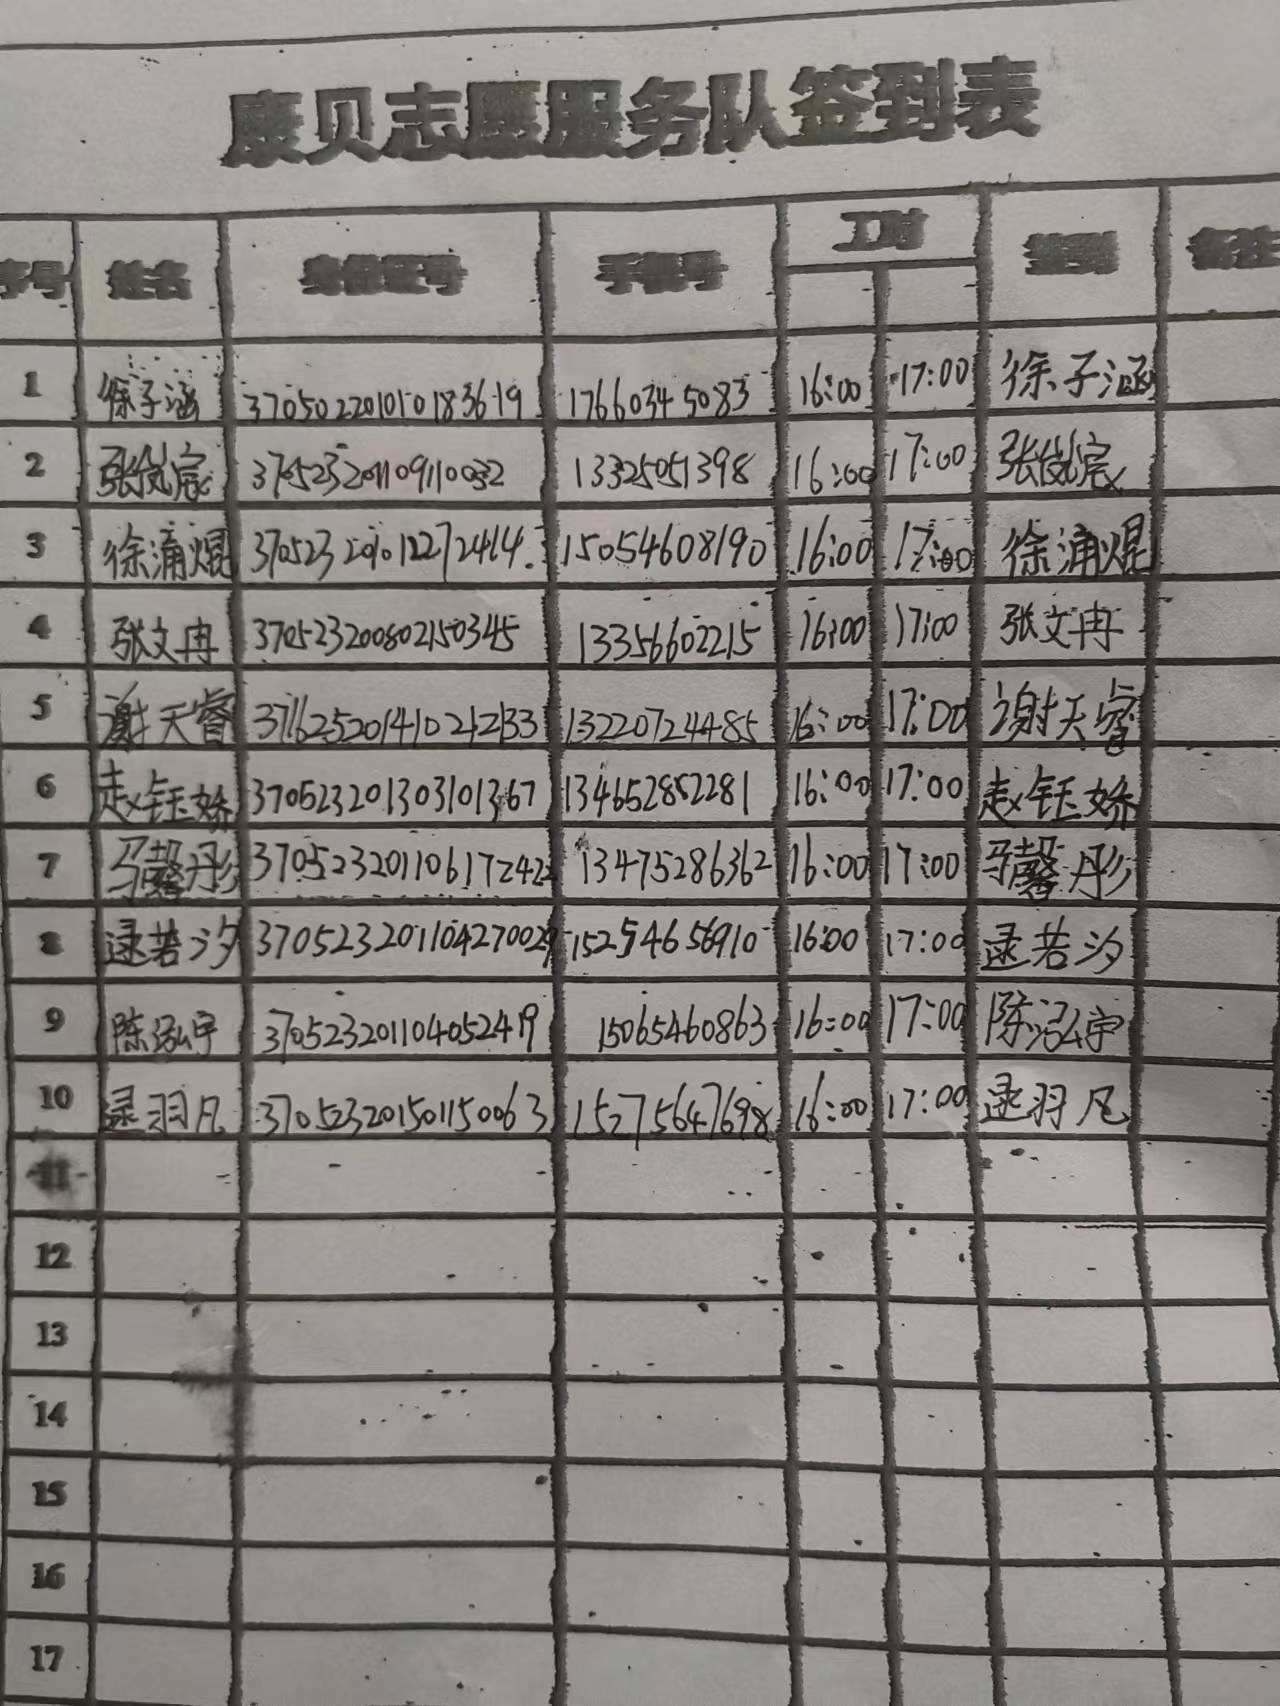 康贝志愿服务队签到表
序号 姓名 身份证号 手机号 工时 签到 备注
1 徐子涵 370502201010183619 17660345083 16:00 17:00 徐子涵
2 张岚宸 370523201109110032 13325051398 16:00 17:00 张岚宸
3 徐浦焜 370523201012272414 15054608190 16:00 17:00 徐浦焜
4 张文冉 370523200802150345 13356602215 16:00 17:00 张文冉
5 谢天睿 371625201410212133 13220724485 16:00 17:00 谢天睿
6 赵钰娇 370523201303101367 134652852281 16:00 17:00 赵钰娇
7 马馨彤 370523201106172422 13475286362 16:00 17:00 马馨彤
8 逯若汐 370523201104270029 15254656910 16:00 17:00 逯若汐
9 陈泓宇 370523201104052419 15065460863 16:00 17:00 陈泓宇
10 逯羽凡 370523201501150063 15275647698 16:00 17:00 逯羽凡
11
12
13
14
15
16
17